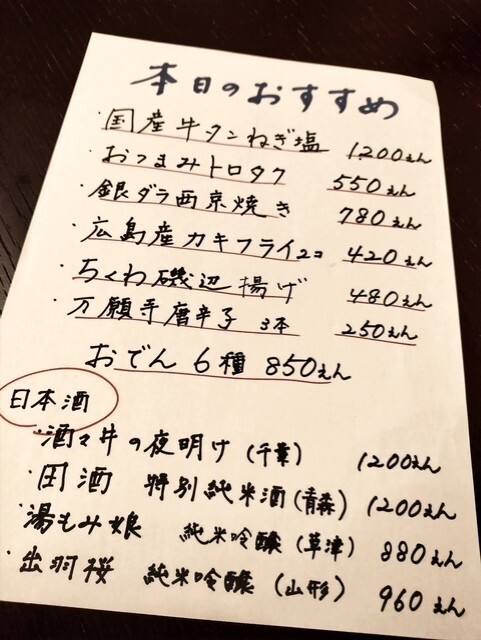 本日のおすすめ
・国産牛タンねぎ塩 1200えん
・おつまみトロタク 550えん
・銀ダラ西京焼き 780えん
・広島産カキフライ2コ 420えん
・ちくわ磯辺揚げ 480えん
・万願寺唐辛子 3本 250えん
おでん 6種 850えん
日本酒
・酒々井の夜明け(千葉) 1200えん
・田酒 特別純米酒(青森) 1200えん
・湯もみ娘 純米吟醸(草津) 880えん
・出羽桜 純米吟醸(山形) 960えん